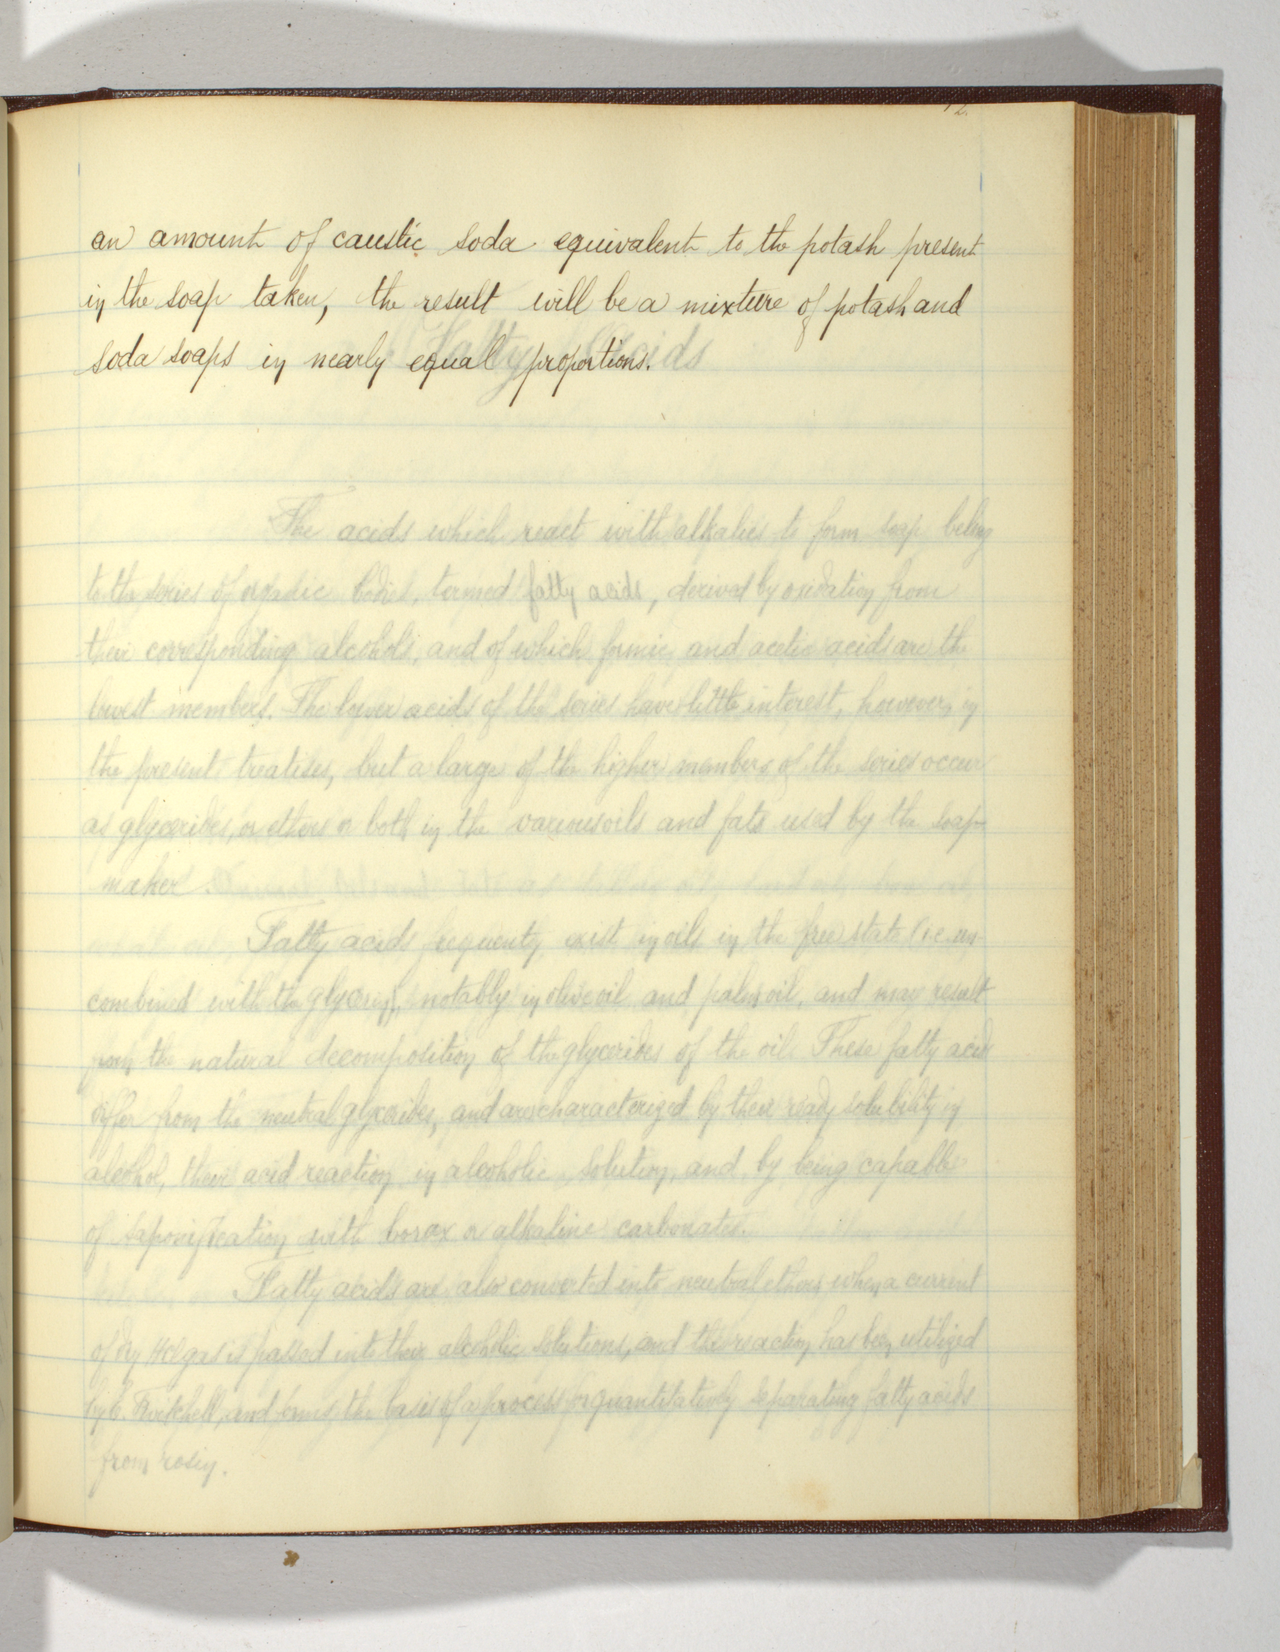 12.
an amount of caustic soda equivalent to the potash present
in the soap taken, the result will be a mixture of potash and
soda soaps in nearly equal proportions.
Fatty Acids
The acids which react with alkalies to form soap belong
to the series of organic bodies, termed fatty acids, derived by oxidation from
their corresponding alcohols, and of which formic and acetic acids are the
lowest members. The lower acids of the series have little interest, however, in
the present treatise, but a large of the higher members of the series occur
as glycerides, or ethers or both in the various oils and fats used by the soap-
maker
Fatty acids frequently exist in oils in the free state (i.e. un-
combined with the glycerin), notably in olive oil and palm oil, and may result
from the natural decomposition of the glycerides of the oil. These fatty acids
differ from the neutral glycerides, and are characterized by their ready solubility in
alcohol, their acid reaction in alcoholic solution, and by being capable
of saponification with borax or alkaline carbonates.
Fatty acids are also converted into neutral ethers when a current
of dry HCl gas is passed into their alcoholic solutions, and the reaction has been utilized
by and forms the basis of a process for quantitatively separating fatty acids
from rosin.